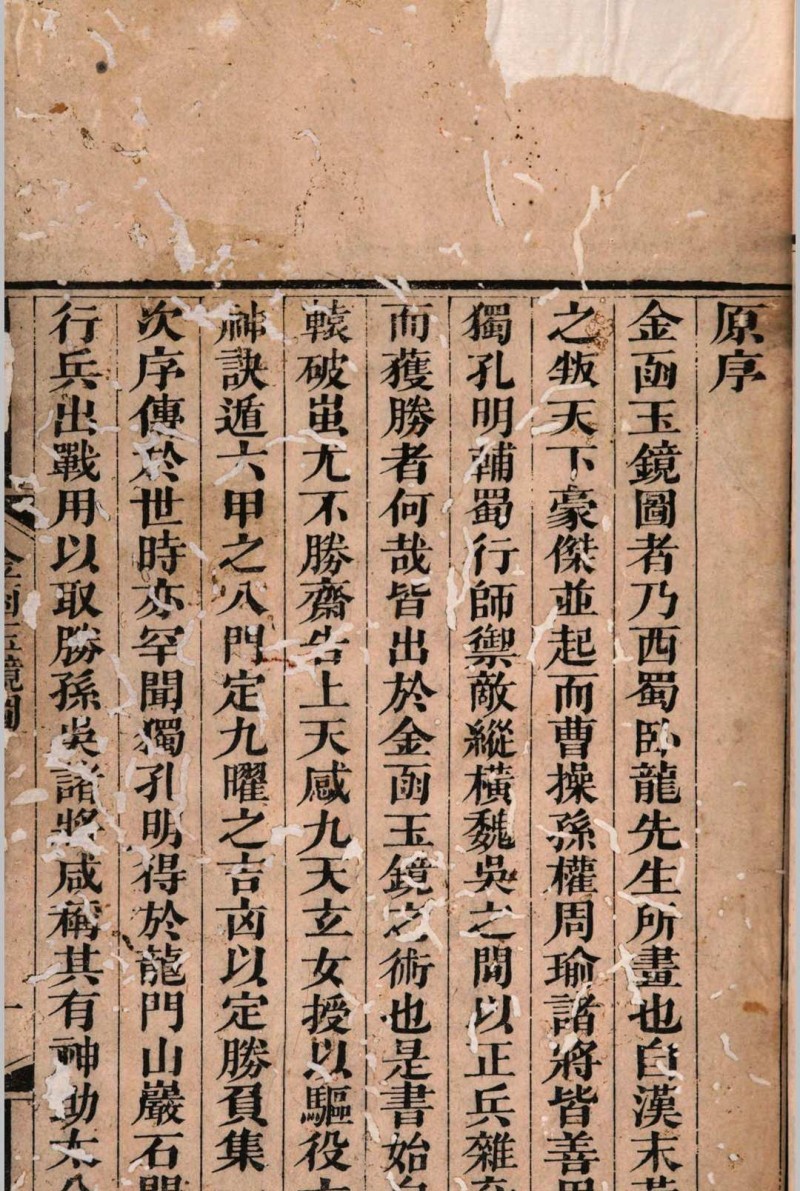 原序
金函玉鏡圖者乃西蜀臥龍先生所畫也自漢末
之叛天下豪傑並起而曹操孫權周瑜諸將皆善用
獨孔明輔蜀行師禦敵縱橫魏吳之間以正兵雜
而獲勝者何哉皆出於金函玉鏡之術也是書始自
轅破蚩尤不勝齋告上天感九天玄女授以驅役六
神訣遁六甲之八門定九曜之吉凶以定勝負集
次序傳於世時亦罕聞獨孔明得於龍門山巖石
行兵出戰用以取勝孫吳諸將咸稱其有神助太公
金函玉鏡圖
一